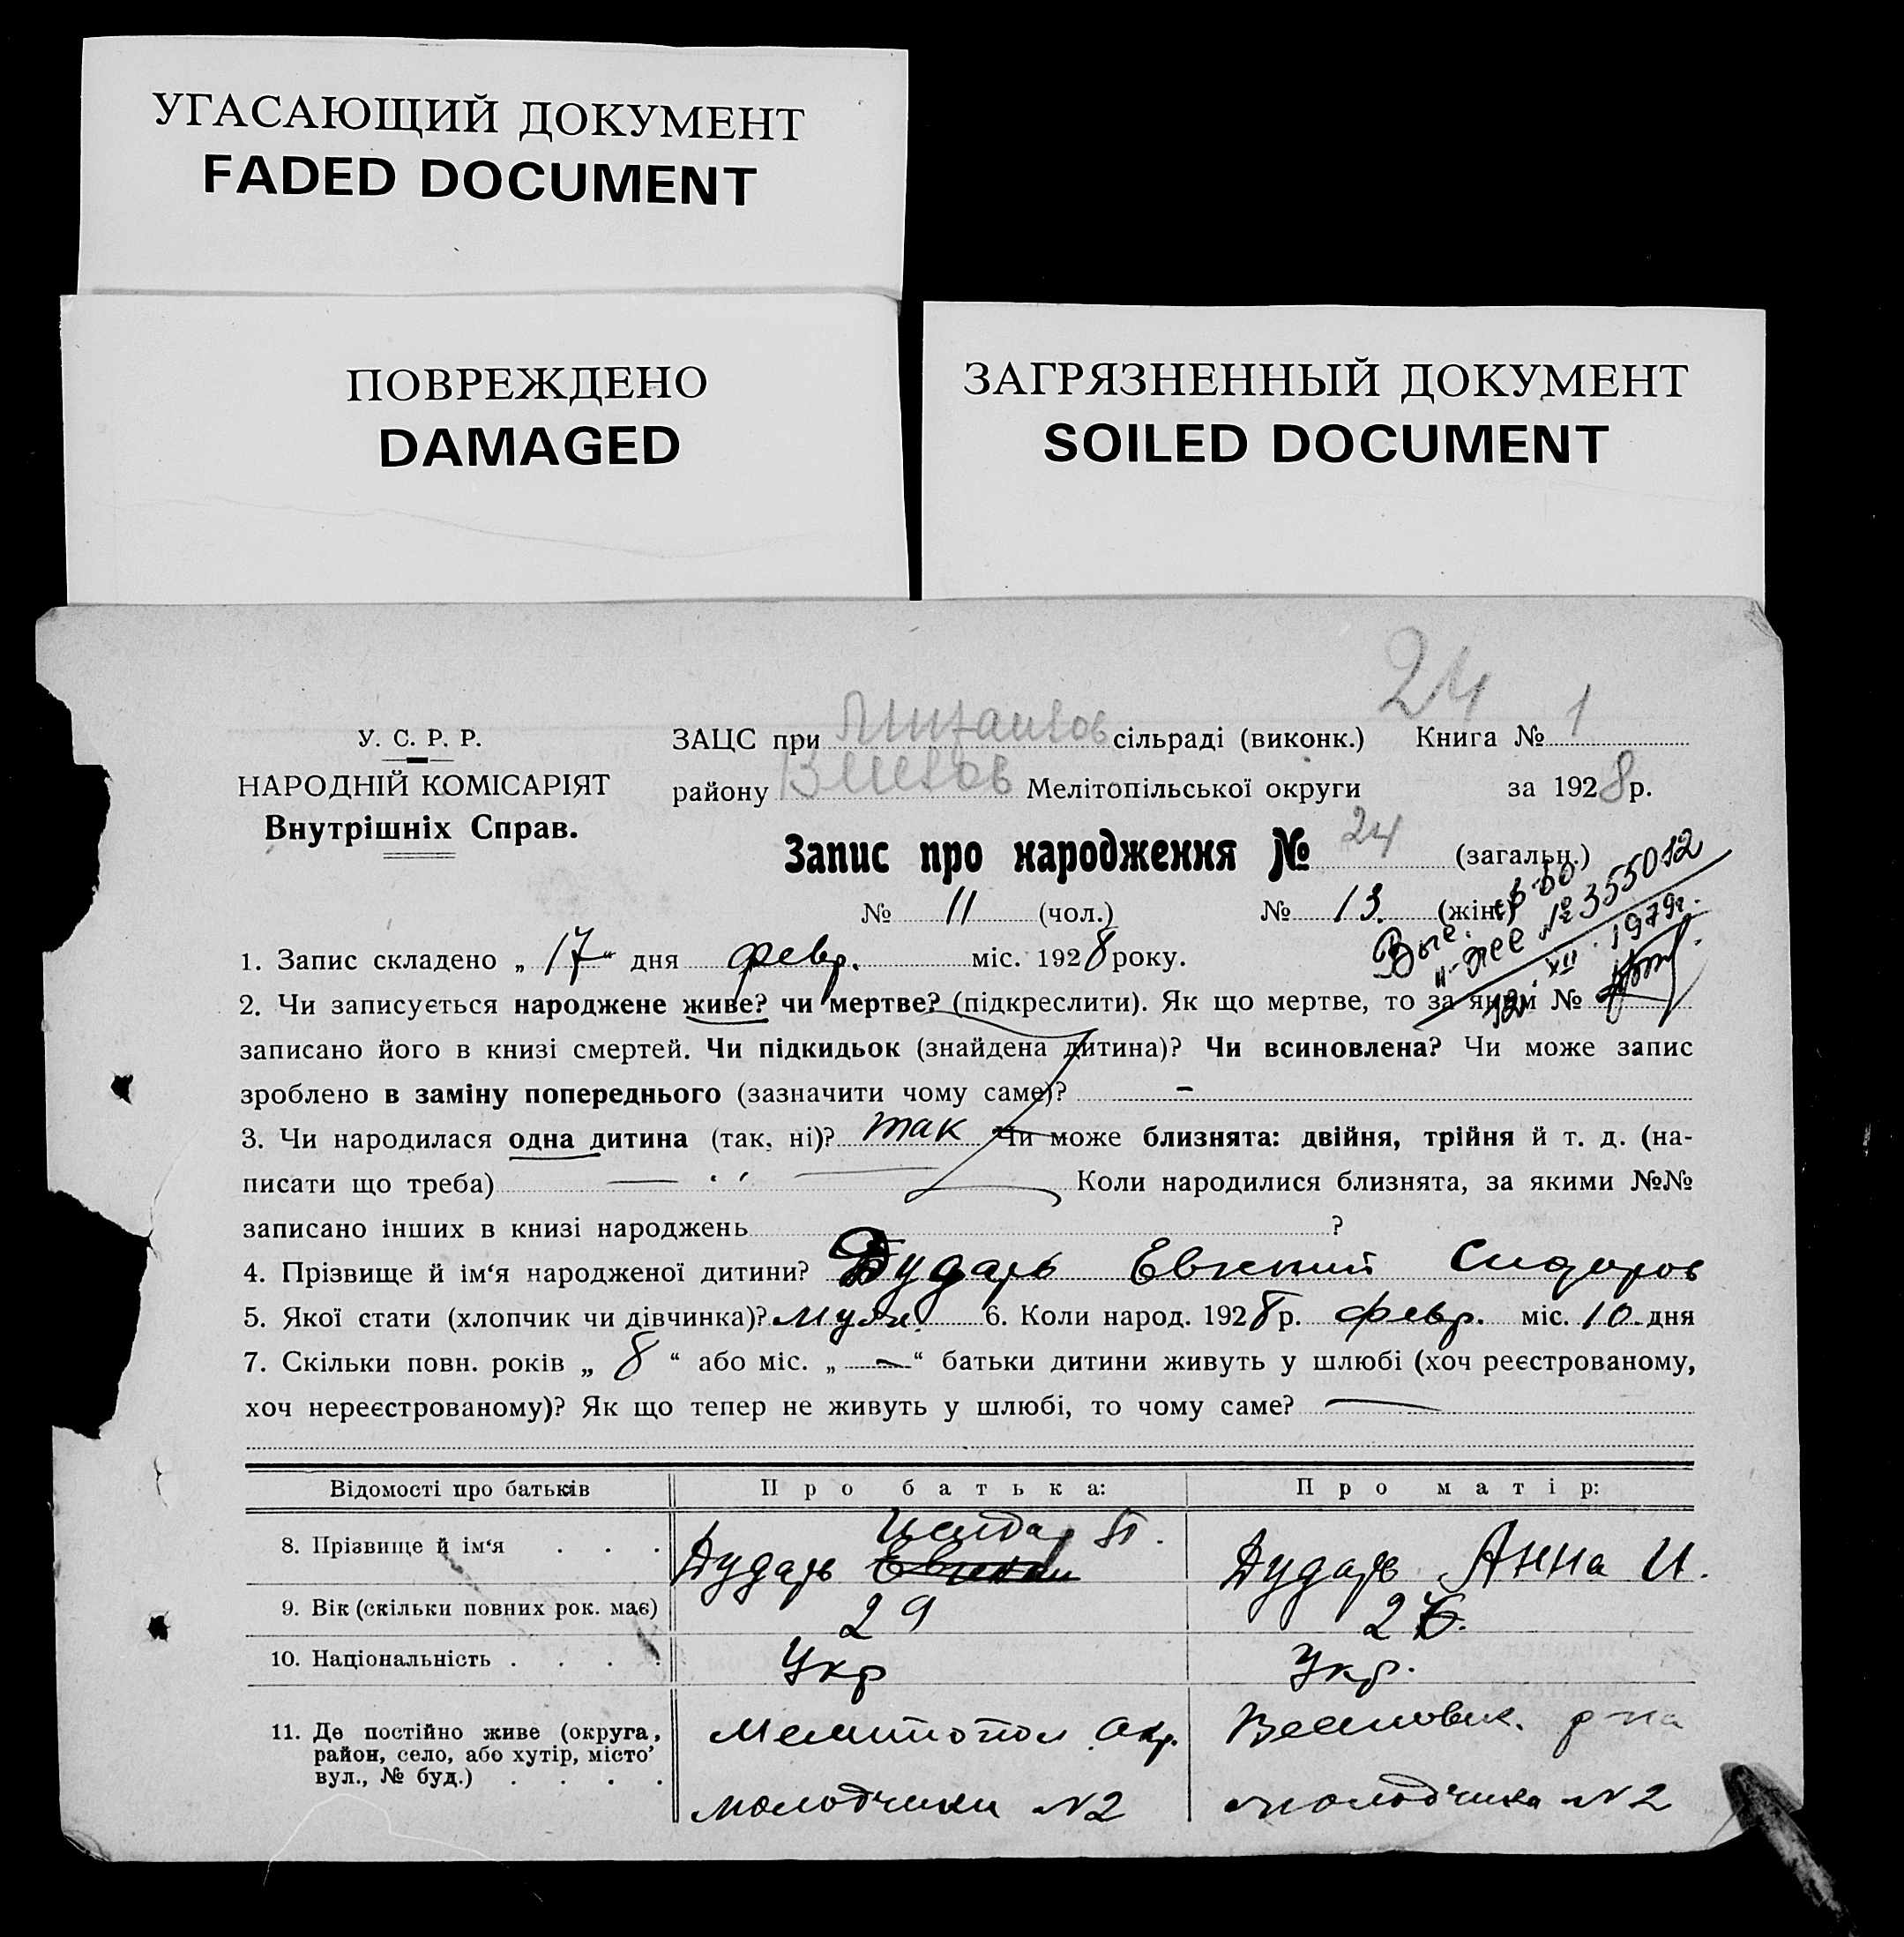 УГАСАЮЩИЙ ДОКУМЕНТ
FADED DOCUMENT
ПОВРЕЖДЕНО
DAMAGED
ЗАГРЯЗНЕННЫЙ ДОКУМЕНТ
SOILED DOCUMENT
24
У. С. Р. Р.
НАРОДНІЙ КОМІСАРІЯТ
Внутрішніх Справ.
ЗАЦС при сільраді (виконк.) Книга № 1
району Мелітопільської округи за 1928 р.
Запис про народження № 24 (загальн.)
№ 11 (чол.) № 13. (жін.)
№ 355012
12 XII 1979г.
1. Запис складено „ 17 “ дня февр. міс. 1928 року.
2. Чи записується народжене живе? чи мертве? (підкреслити). Як що мертве, то за яким №
записано його в книзі смертей. Чи підкидьок (знайдена дитина)? Чи всиновлена? Чи може запис
зроблено в заміну попереднього (зазначити чому саме)? –
3. Чи народилася одна дитина (так, ні)? так Чи може близнята: двійня, трійня й т. д. (на-
писати що треба) — Коли народилися близнята, за якими №№
записано інших в книзі народжень ?
4. Прізвище й ім‘я народженої дитини? Дударь Сидоров
5. Якої стати (хлопчик чи дівчинка)? муж. 6. Коли народ. 1928 р. февр. міс. 10 дня
7. Скільки повн. років „ 8 “ або міс. „ — “ батьки дитини живуть у шлюбі (хоч реєстрованому,
хоч нереєстрованому)? Як що тепер не живуть у шлюбі, то чому саме? —
Відомості про батьків Про батька: Про матір:
8. Прізвище й ім‘я . . . Дударь Дударь Анна И.
9. Вік (скільки повних рок. має) 29 26.
10. Національність . . . . Укр Укр.
11. Де постійно живе (округа, район, село, або хутір, місто, вул., № буд.) . . . . Мелитопол окр. р-на
№2 №2